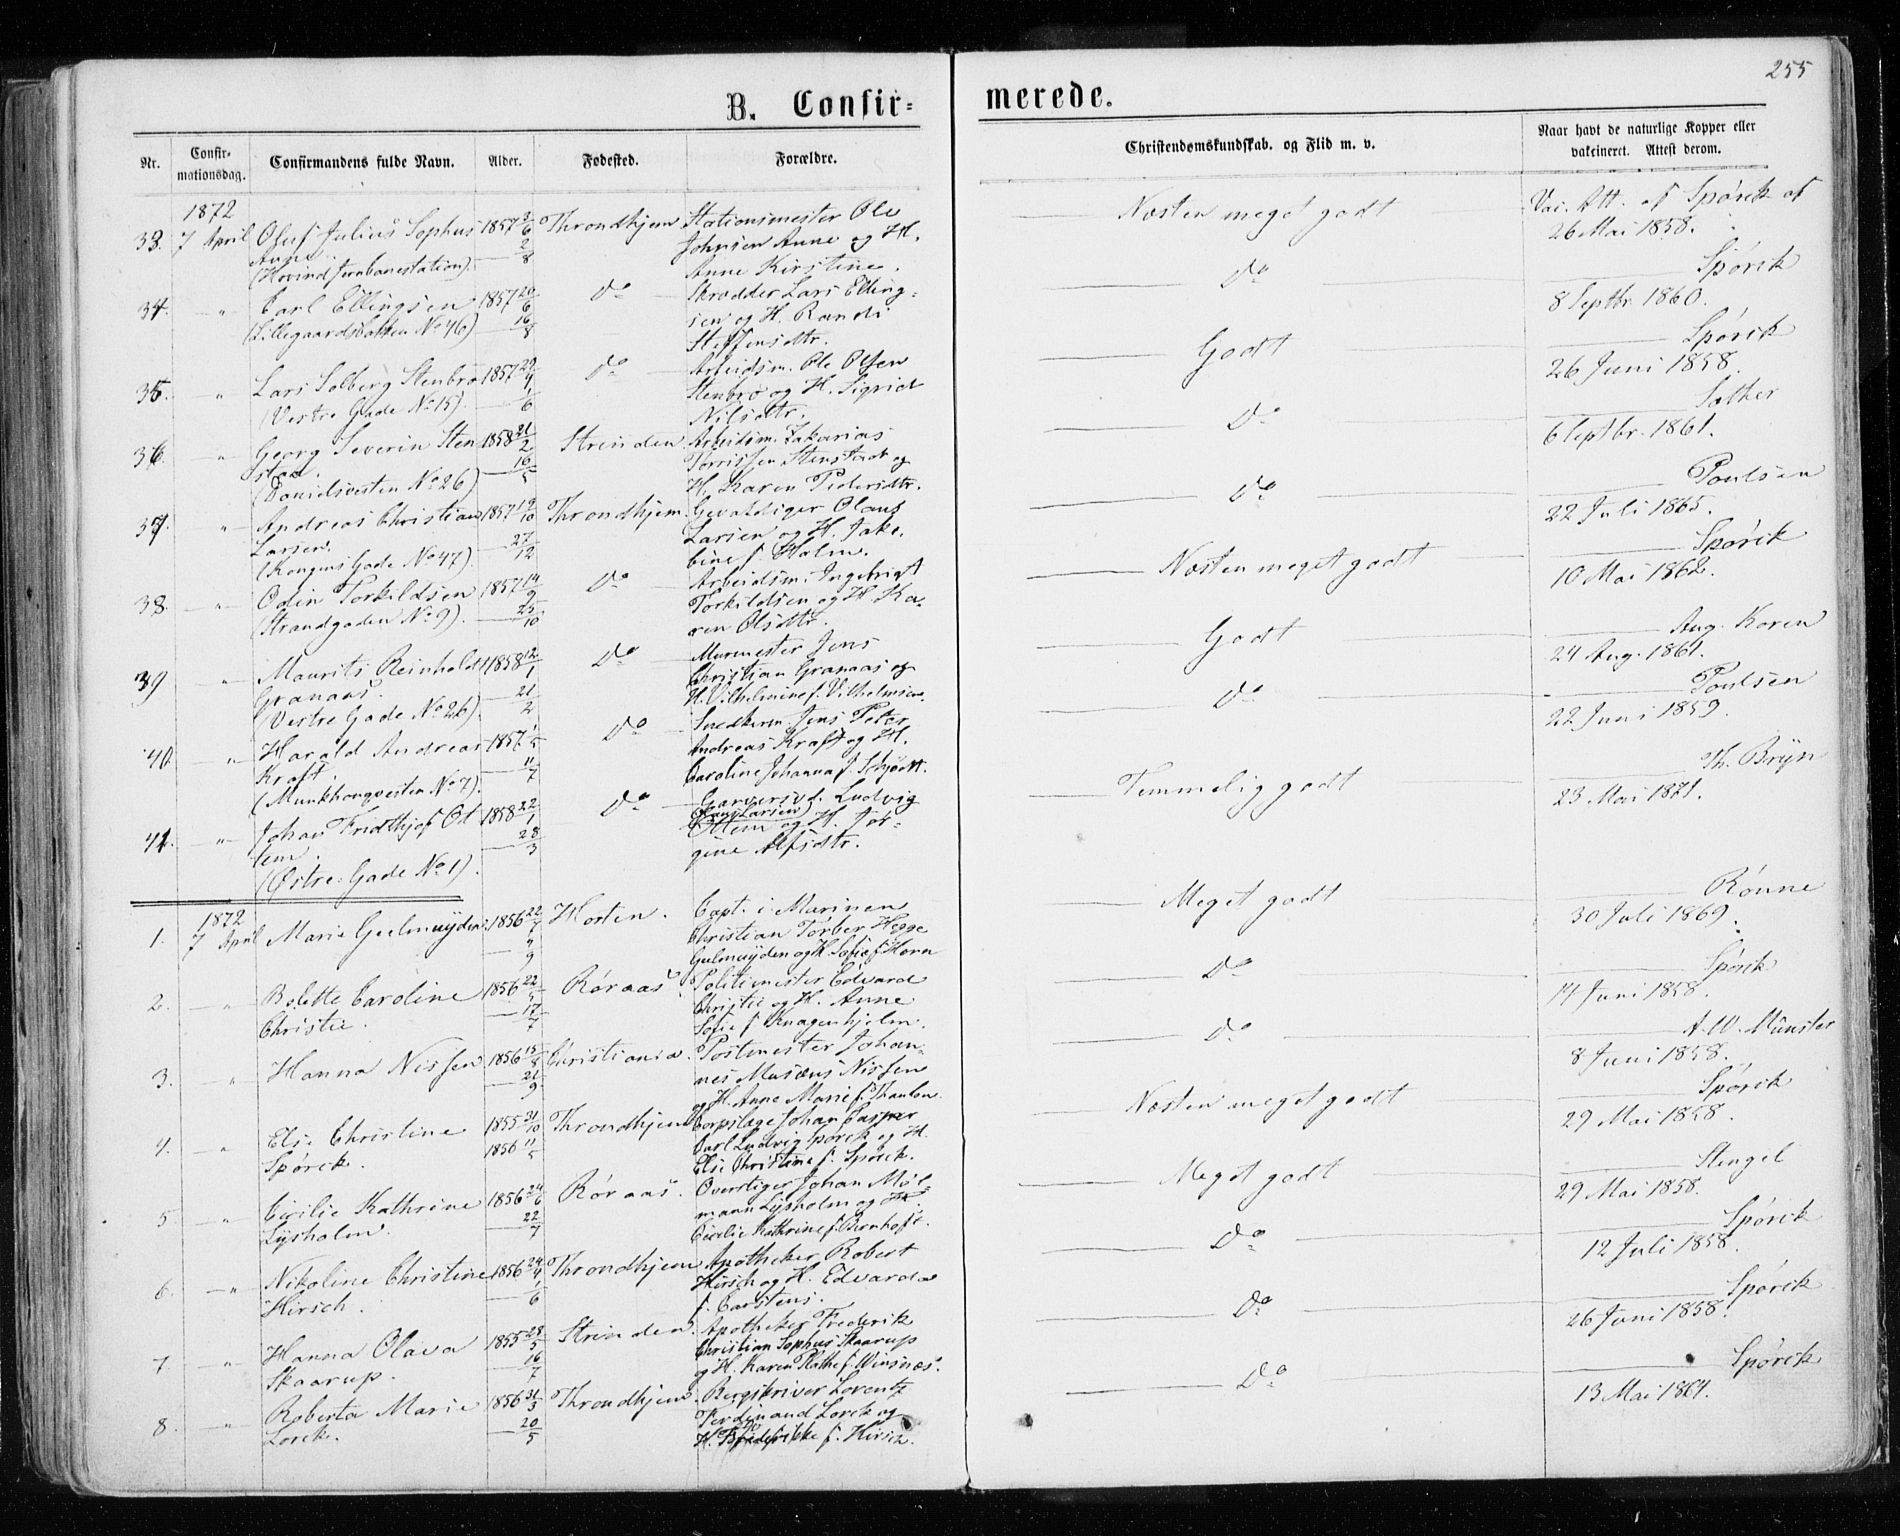 255
B. Confir=
merede.
Nr.
Confir-
mationsdag.
Confirmandens fulde Navn.
Alder.
Fødested.
Forældre.
Christendomskundskab. og Flid m. v.
Naar havt de naturlige Kopper eller
vakcineret. Attest derom.
1872
33. 7 April Oluf Julius Sophus 1857 Throndhjem Stationsmester Ole
Anne Johnsen Anne og H.
(Hovind Jernbanestation). Anne Kirstine.
Næsten meget godt
Vac. Att. af Spørck af
26 Mai 1858.
34. " Carl Ellingsen 1857 20/6 Do Skrædder Lars Elling-
(Lillegaardsbakken No 46) 16/8 sen og H. Randi
Steffensdtr.
Do
Spørck
8 Septbr. 1860.
35. " Lars Solberg Stenbro 1857 Do Arbeidsm. Ole Olsen
(Vestre Gade No 15). Stenbro og H. Sigrid
Nilsdtr.
Godt
Spørck
26 Juni 1858.
36. " Georg Severin Sten 1858 21/2 Strinden Arbeidsm. Zakarias
stad. Torrissen Stenstad og
(Davidsvesten No 26) 16/5 H. Karen Pedersdtr.
Do
Sather
6 Septbr. 1861.
37. " Andreas Christian 1857 19/10 Throndhjem. Gevaldiger Olaus
Larsen. Larsen og H. Jako-
(Kongens Gade No 47). 27/12 bine f. Holm.
Do
Poulsen
22 Juli 1865.
38. " Odin Torkildsen 1857 14/9 Do Arbeidsm. Ingebrigt
(Strandgaden No 9). 25/10 Torkildsen og H. Ka-
ren Olsdtr.
Næsten meget godt
Spørck
10 Mai 1862.
39 " Maurits Reinholdt 1858 12/1 Do Murmester Jens
Granaas. Christian Granaas og
(Vestre Gade No 26). 21/2 H. Vilhelmine f. Vilhelmsen.
Godt
Aug. Koren
24 Aug. 1861.
40. " Harald Andreas 1857 1/5 Do Snedkerm. Jens Peter
Kraft. Andreas Kraft og H.
(Munkhougvesten No 7). 11/7 Caroline Johanna f. Schjødt.
Do
Poulsen
22 Juni 1859.
41. " Johan Fridthjof Ot 1858 22/1 Do Garversv. Ludvig
tem. Hans Larsen
Ottem og H. Jør-
(Østre Gade No 1). 28/3 gine Alfsdtr.
Temmelig godt
Th. Bryn
23 Mai 1871.
1872
1. 7 April Marie Geelmuyden 1856 22/7 Horten. Capt. i Marinen
Christian Torber Hegge
9/9 Gelmuyden og H. Sofie f. Horn
Meget godt
Rønne
30 Juli 1869.
2. " Bolette Caroline 1856 22/5 Røraas. Politimester Edvard
Christie. 17/7 Christie og H. Anne
Sofie f. Knagenhjelm.
Do
Spørck
14 Juni 1858.
3. " Hanna Nissen 1856 15/8 Christiania. Postmester Johan-
21/9 nes Musæus Nissen
og H. Anne Marie f. Thaulow.
Do
A. W. Münster
8 Juni 1858.
4. " Else Christine 1855 31/10 Throndhjem Corpslæge Johan Casper
Spørck. 1856 11/5 Carl Ludvig Spørck og H.
Else Christine f. Spørck.
Næsten meget godt
Spørck
29 Mai 1858.
5. " Cecilie Kathrine 1856 24/6 Røraas. Overstiger Johan Møl-
Lysholm. 22/7 mann Lysholm og H.
Cecilie Kathrine f. Bernhoft.
Meget godt
Stengel
29 Mai 1858.
6. " Nikoline Christine 1856 24/4 Throndhjem Apotheker Robert
Hirsch. 1/6 Hirsch og H. Edvarda
f. Carstens.
Do
Spørck
12 Juli 1858.
7. " Hanna Olava 1855 28/5 Strinden. Apotheker Frederik
Skaarup. 16/7 Christian Sophus Skaarup
og H. Karen Kathe f. Winsnæs.
Do
Spørck
26 Juni 1858.
8. " Roberta Marie 1856 31/3 Throndhjem. Bergskriver Lorentz
Lorck. 20/5 Ferdinand Lorck og
H. Frederikke f. Hirsch.
Do
Spørck
13 Mai 1864.